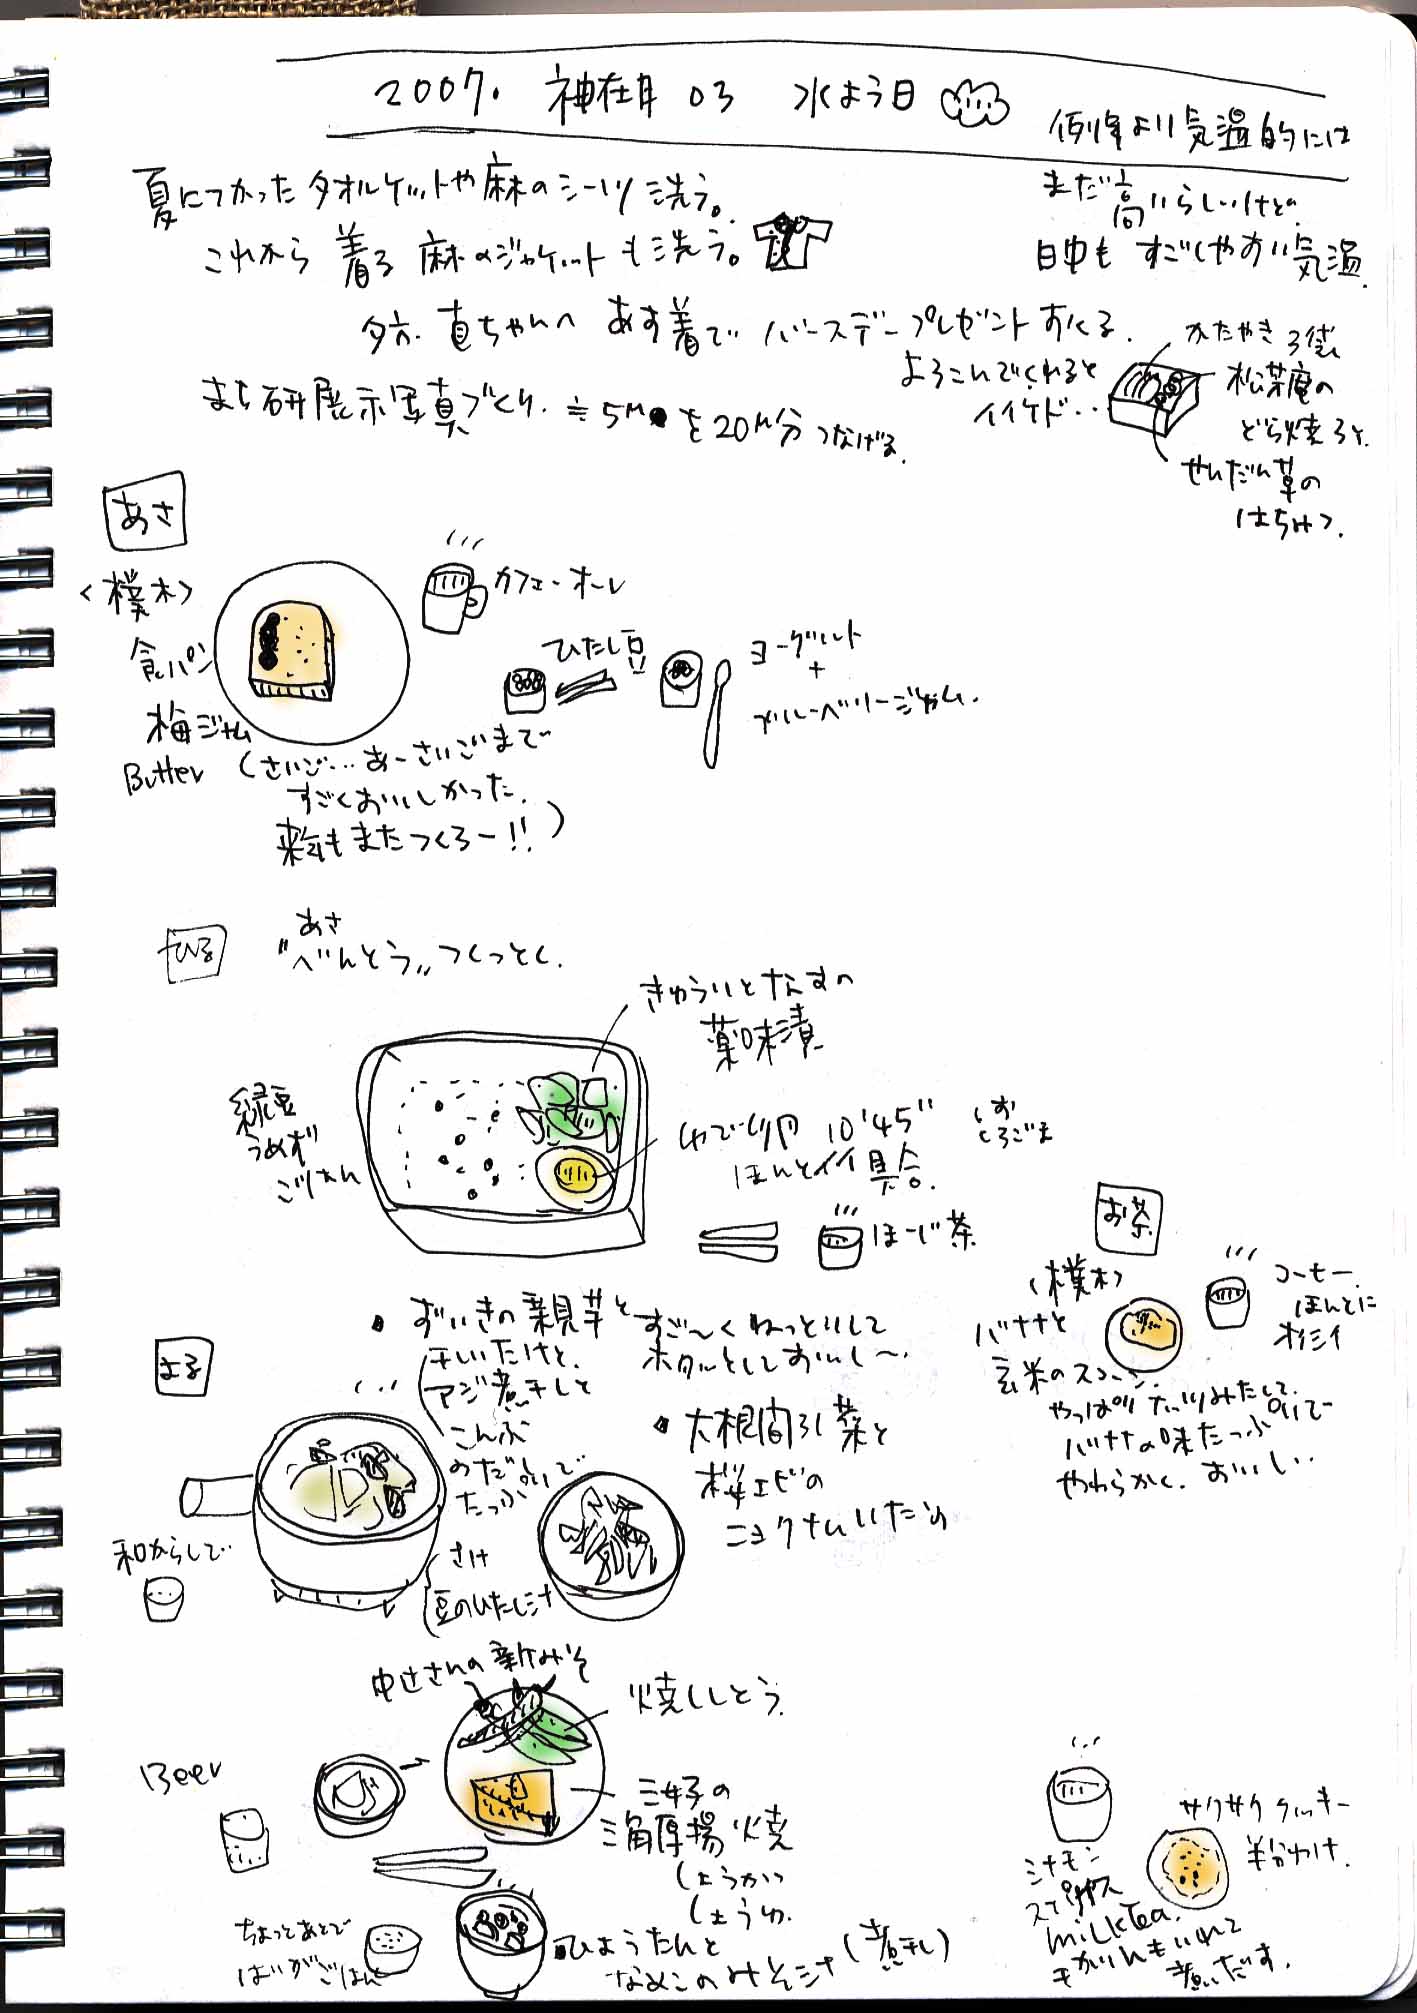 2007. 神在月 03 水よう日
例年より気温的には
まだ高いらしいけどの
日中も すごしやすい気温
夏につかった タオルケットや麻のシーツ 洗う。
これから 着る 麻のジャケットも洗う。
夕方. 直ちゃんへ あす着で バースデープレゼント おくる
よろこんでくれると
イイケド・・
かたやき3袋
松葉庵の
どら焼3と
せんだん草の
はちみつ.
まち研展示写真づくり. ≒5M を20M分つなげる.
あさ
<樸木>
食パン
梅ジャム
Butter (さいご…あーさいごまで
すごくおいしかった.
来年もまたつくろー!!)
カフェ・オーレ
ひたし豆
ヨーグルト
+
ブルーベリージャム.
ひる
あさ
"べんとう"つくっとく.
きゅうりとなすの
薬味漬
緑豆
うめぼ
ごはん
ゆで卵 10'45"
ほんとイイ具合.
とろごま
ほーじ茶
お茶
<樸木>
バナナと
玄米のスコーン.
コーヒー.
ほんとに
オイシイ
やっぱりナッツみたして
バナナの味たっぷりで
やわらかく. おいしい..
よる
ずいきの親芋と
干しいたけと.
アジ煮干しと
こんぶ
のだし
たっぷりで
すご〜くねっとりして
ホクッとしておいし〜.
大根間引菜と
桜エビの
ニョクナムいため
和からしで
さけ
豆のひたし汁
中辻さんの新みそ
焼ししとう.
Beer
三好の
三角厚揚焼
しょうが
しょうゆ.
ちょっとあとで
はいがごはん
ひょうたんと
なめこのみそ汁(煮干し)
サクサククッキー
半分わけ.
シナモン
スパイス
milkTea.
かりんもいれて
煮だす.